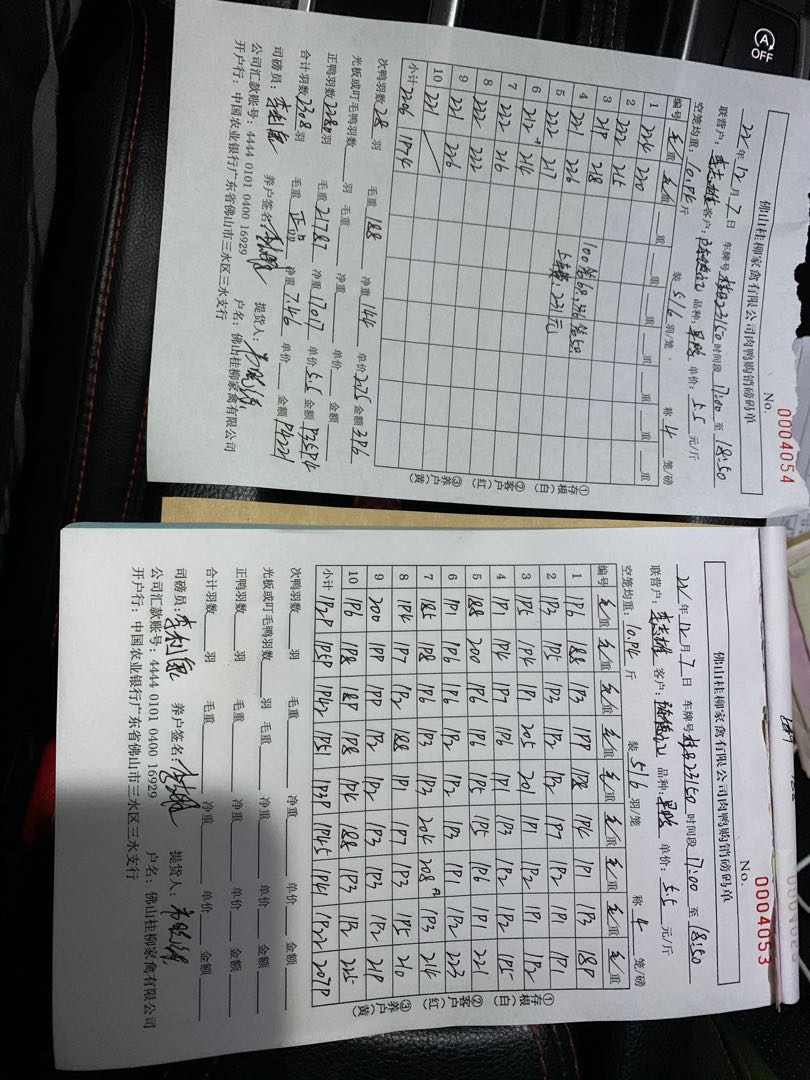 佛山桂柳家禽有限公司肉鸭购销磅码单
No. 0004054
22年12月7日 车牌号 23150 时间段 17:00 至 18:50
联营户: 李志雄 客户: 品种: 单价: 5.5 元/斤
空笼均重: 10.94 斤 装 5/6 羽/笼 称 4 笼/磅
编号 毛重 毛重 重 重 重 重 重 重 重
1 224 220
2 222 215
3 219 218
4 221 226
5 222 217
6 212 214
7 222 216
8 222 222
9 221 226
10 221
小计 2206 1974
100笼68, 376笼58
231元
①存根(白) ②客户(红) ③养户(黄)
次鸭羽数 28 羽 毛重 188 净重 144 单价 2.75 金额 396
光板或叮毛鸭羽数 羽 毛重 净重 单价 金额
正鸭羽数 2280 羽 毛重 21787 净重 17017 单价 5.5 金额 93594
合计羽数 2308 羽 毛重 正品 净重 7.46 单价 金额 94221
司磅员: 李利泉 养户签名: 提货人:
公司汇款账号: 4444 0101 0400 16929 户名: 佛山桂柳家禽有限公司
开户行: 中国农业银行广东省佛山市三水区三水支行
佛山桂柳家禽有限公司肉鸭购销磅码单
No. 0004053
22年12月7日 车牌号 23150 时间段 17:00 至 18:50
联营户: 李志雄 客户: 品种: 单价: 5.5 元/斤
空笼均重: 10.94 斤 装 5/6 羽/笼 称 4 笼/磅
编号 毛重 毛重 毛重 毛重 毛重 毛重 毛重 毛重 毛重
1 196 188 193 199 198 194 191 193 189
2 193 195 193 191 192 197 192 191 191
3 195 194 191 205 201 191 192 191 192
4 191 194 197 196 191 193 192 192 195
5 188 200 196 196 195 195 196 191 221
6 191 196 196 192 192 193 191 192 223
7 185 198 196 193 193 204 208 193 214
8 194 197 192 188 191 197 193 195 210
9 200 199 199 192 192 193 193 192 219
10 196 198 189 198 194 188 193 192 225
小计 1929 1959 1942 1951 1939 1945 1941 1922 2079
①存根(白) ②客户(红) ③养户(黄)
次鸭羽数 羽 毛重 净重 单价 金额
光板或叮毛鸭羽数 羽 毛重 净重 单价 金额
正鸭羽数 羽 毛重 净重 单价 金额
合计羽数 羽 毛重 净重 单价 金额
司磅员: 李利泉 养户签名: 提货人:
公司汇款账号: 4444 0101 0400 16929 户名: 佛山桂柳家禽有限公司
开户行: 中国农业银行广东省佛山市三水区三水支行
A
OFF